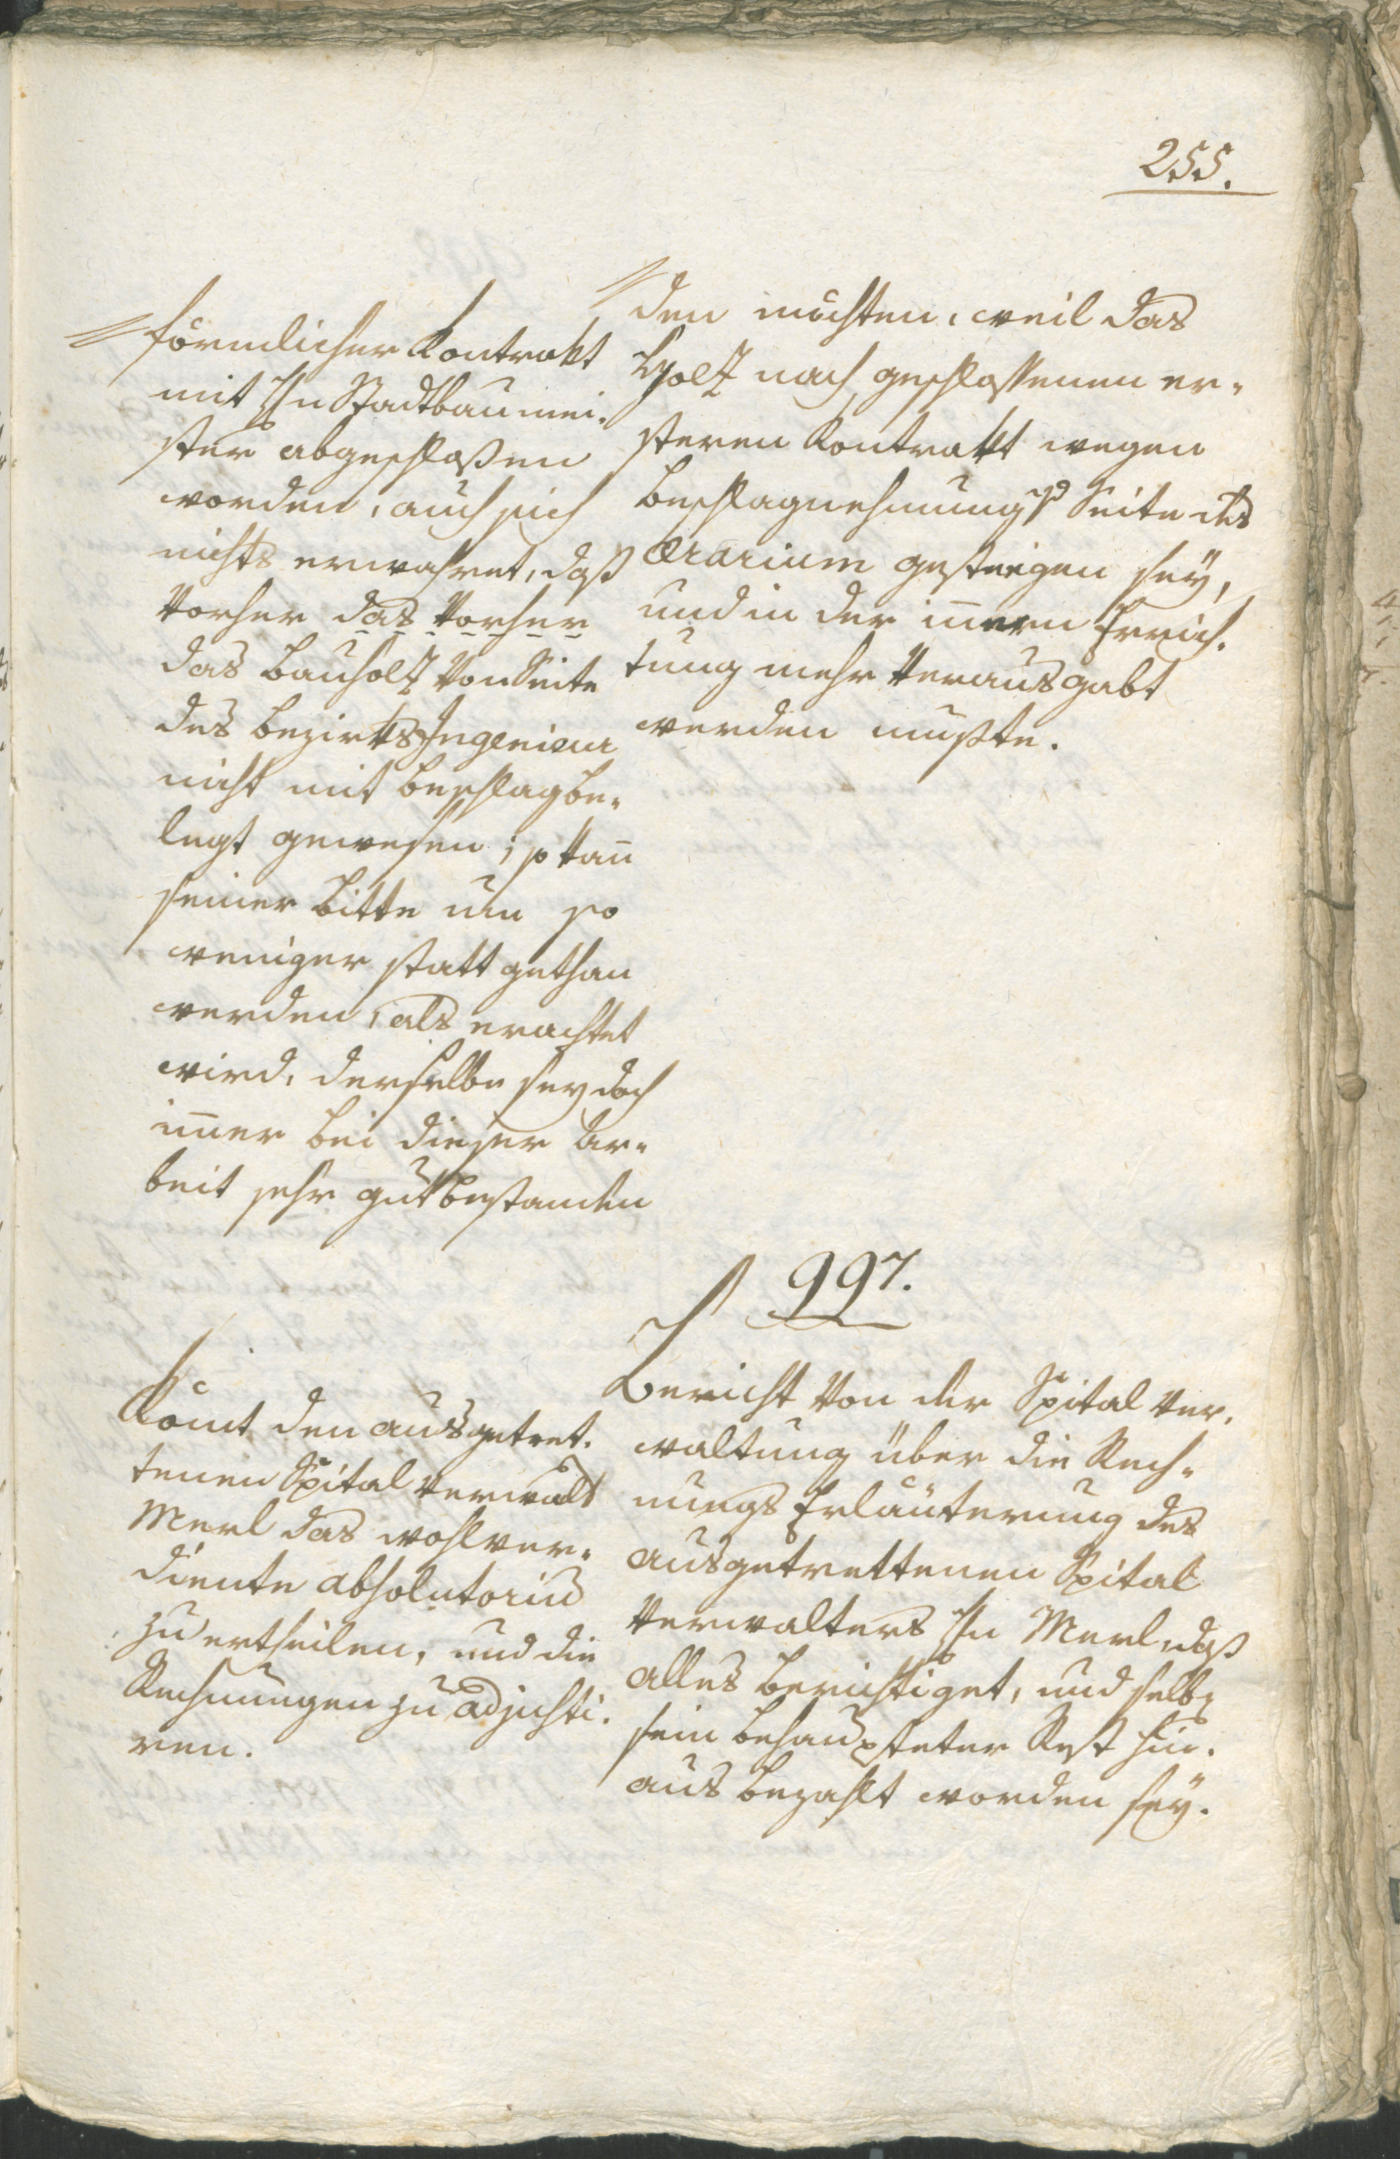 255.
förmlicher Kontrakt
mit Hn Stadtbaumei-
ster abgeschloßen
worden, auch sich
nichts erwahret, daß
vorher das vorher
das Bauholz von Seite
des Bezirks Ingenieur
nicht mit Beschlag be-
legt gewesen; so kan̄
seiner Bitte um so
weniger statt gethan
werden, als erachtet
wird, derselbe sey doch
im̄er bei dieser Ar-
beit sehr gut bestanden
den möchten, weil das
Holz nach geschlossenen er-
steren Kontrakt wegen
Beschlagnehmung Seite des
Ærarium gestiegen seÿ,
und in der in̄ern Errich-
tung mehr verausgabt
werden mußte.
997.
Kom̄t den ausgetret-
tenen Spital Verwalt
Merl das wohlver-
diente absolutorium
zu ertheilen, und die
Rechnungen zu adjusti-
ren.
Bericht von der Spital Ver-
waltung über die Rech-
nungs Erläuterung des
ausgetrettenen Spital
Verwalters Hn Merl, daß
alles berichtiget, und selbst
sein behaupteter Rest hin-
aus bezahlt worden seÿ.